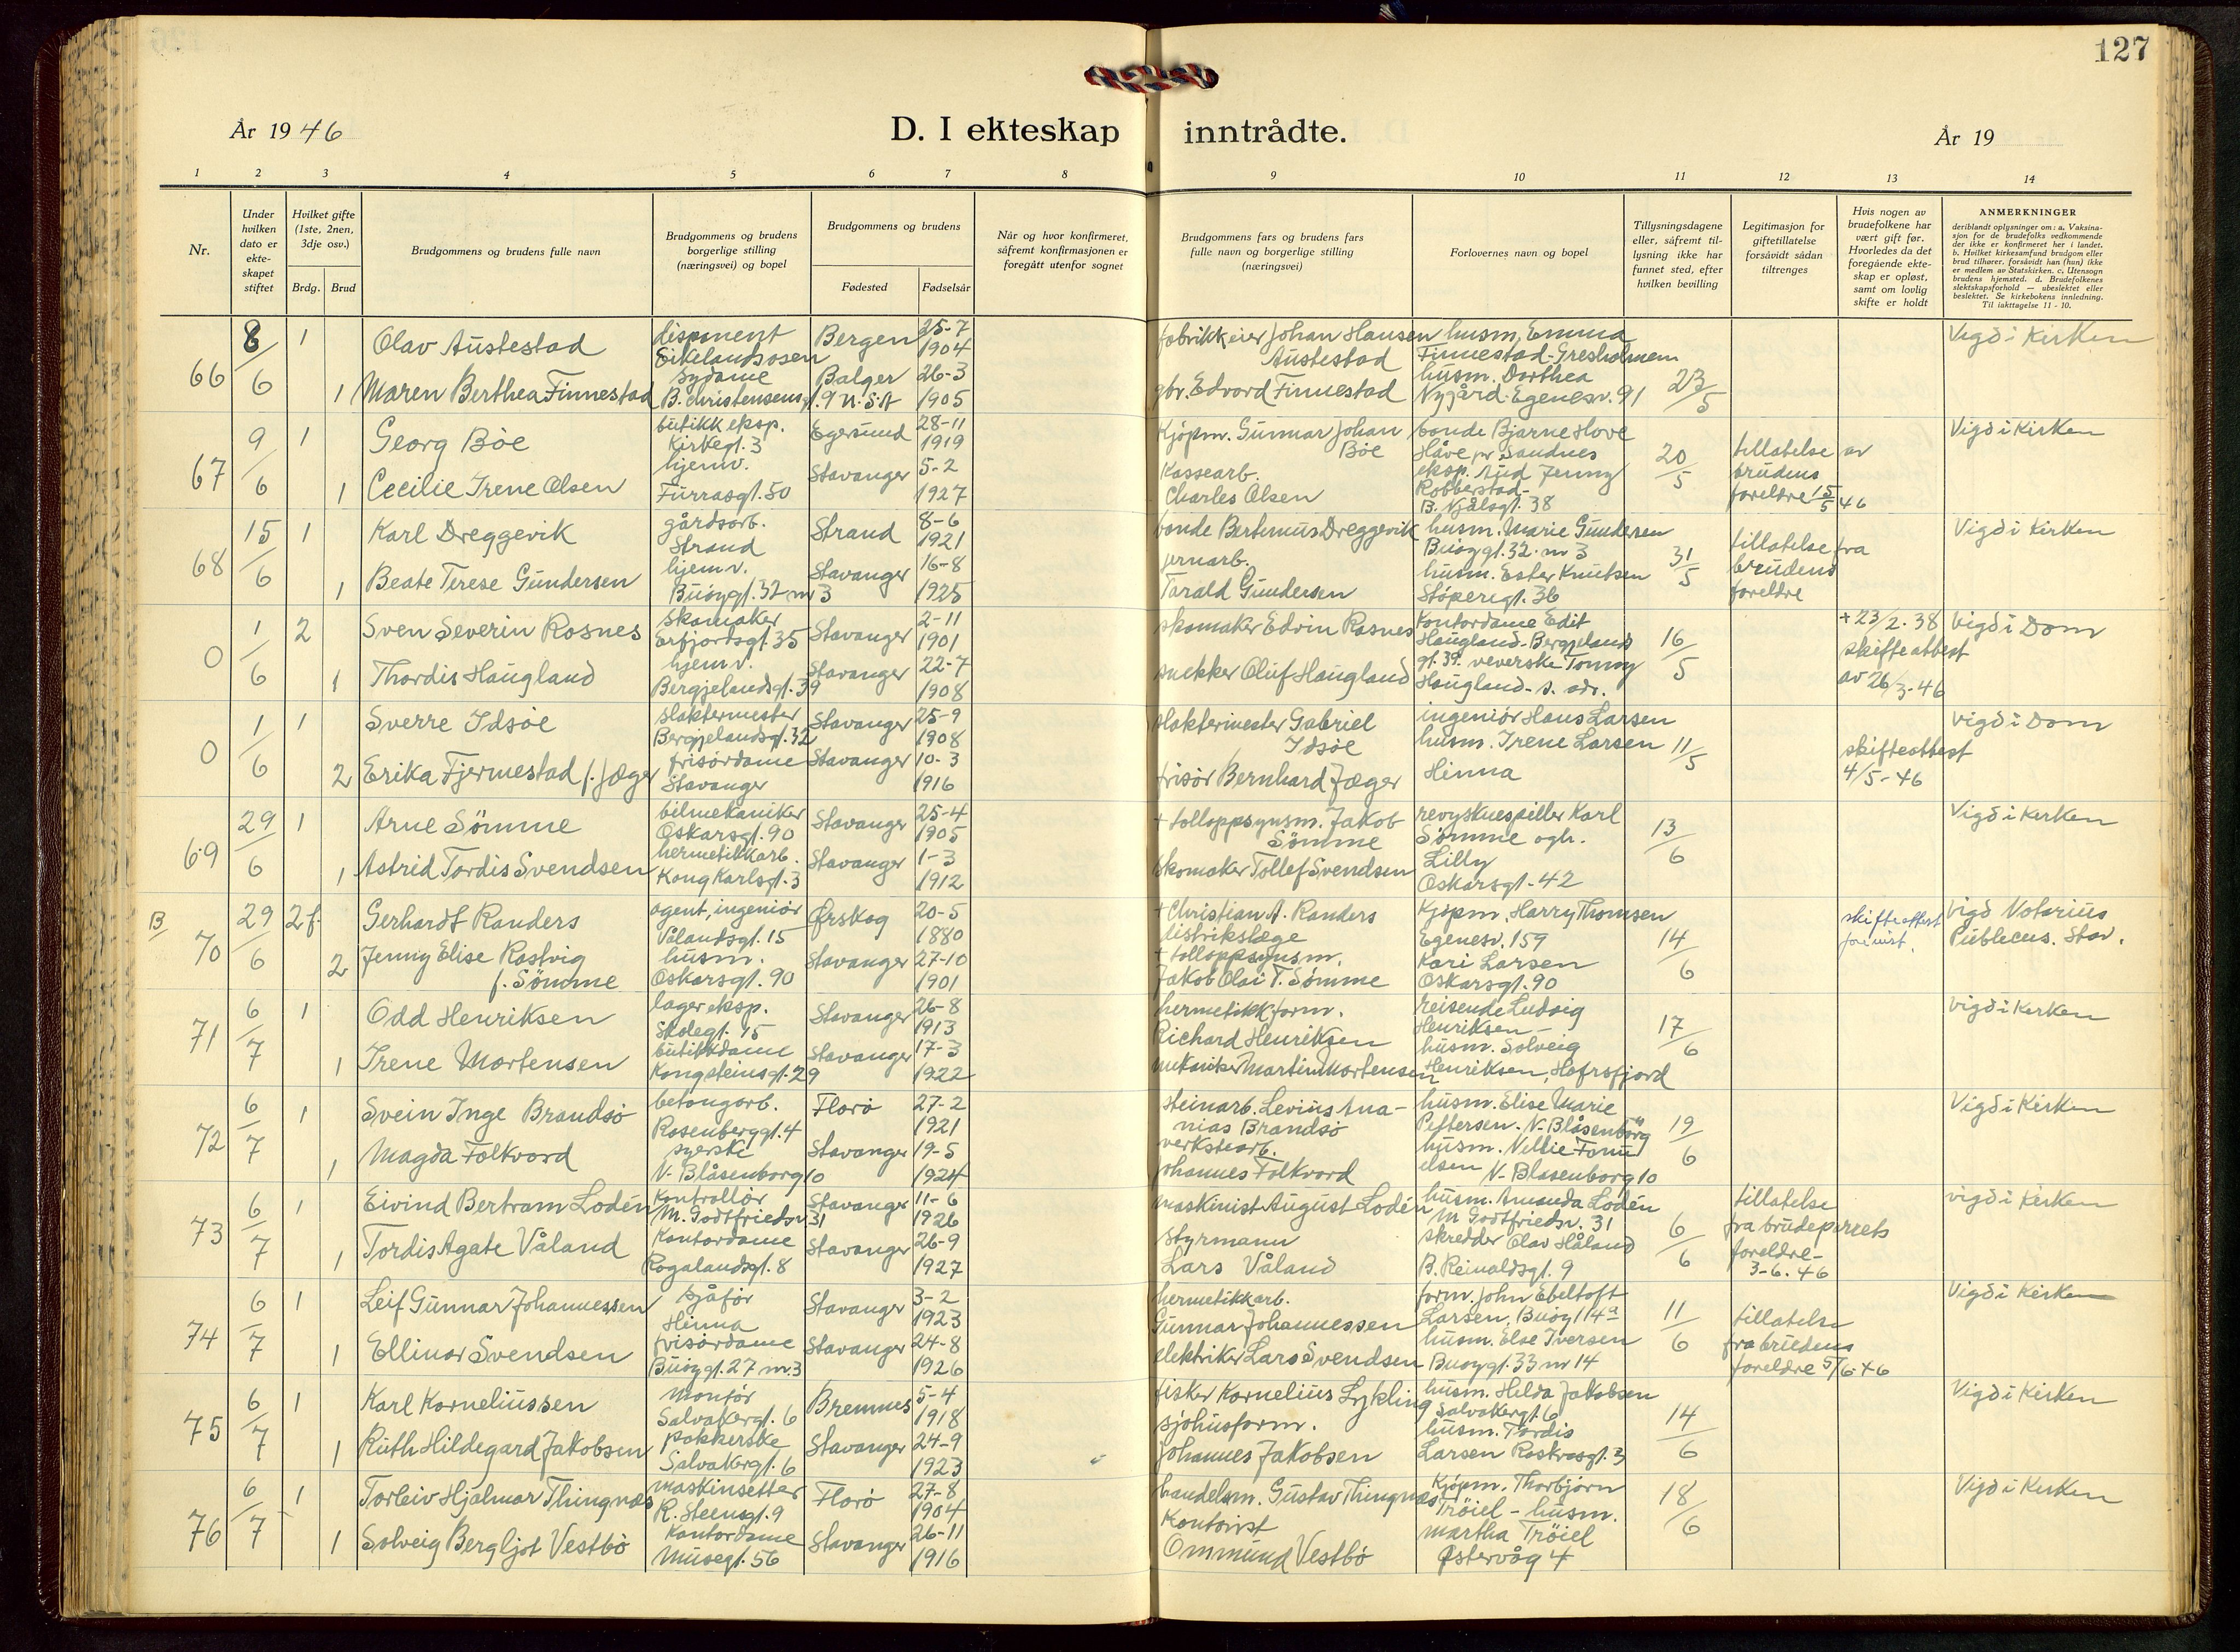 127
År 1946
D. I ekteskap inntrådte.
År 19
1 2 3 4 5 6 7 8 9 10 11 12 13 14
Nr.
Under hvilken dato er ekte-skapet stiftet
Hvilket gifte (1ste, 2nen, 3dje osv.)
Brdg. Brud
Brudgommens og brudens fulle navn
Brudgommens og brudens borgerlige stilling (næringsvei) og bopel
Brudgommens og brudens
Fødested Fødselsår
Når og hvor konfirmeret, såfremt konfirmasjonen er foregått utenfor sognet
Brudgommens fars og brudens fars fulle navn og borgerlige stilling (næringsvei)
Forlovernes navn og bopel
Tillysningsdagene eller, såfremt til-lysning ikke har funnet sted, efter hvilken bevilling
Legitimasjon for giftetillatelse forsåvidt sådan tiltrenges
Hvis nogen av brudefolkene har vært gift før. Hvorledes da det foregående ekte-skap er opløst, samt om lovlig skifte er holdt
ANMERKNINGER
deriblandt oplysninger om: a. Vaksina-sjon for de brudefolks vedkommende der ikke er konfirmeret her i landet. b. Hvilket kirkesamfund brudgom eller brud tilhører, forsåvidt han (hun) ikke er medlem av Statskirken. c. Utensogn brudens hjemsted. d. Brudefolkenes slektskapsforhold — ubeslektet eller beslektet. Se kirkebokens innledning. Til iakttagelse 11 - 10.
66 8/6 1 Olav Austestad disponent Eikelandsosen Bergen 25-7 1904 fabrikkeier Johan Hansen Austestad husm. Emma Finnestad-Gresholmen 23/5 Vigd i Kirken
1 Maren Berthea Finnestad sydame B. Christensensgt. 9 Balger U.S.A 26-3 1905 gbr. Edvard Finnestad husm. Dorthea Nygård. Egenesv. 91
67 9/6 1 Georg Böe butikk eksp. Kirkegt. 3 Egersund 28-11 1919 Kjöpm. Gunnar Johan Böe bonde Bjarne Hove Håve pr Sandnes 20/5 tillatelse av brudens foreldre 15/5 46 Vigd i Kirken
1 Cecilie Irene Olsen hjemv. Furrasgt. 50 Stavanger 5-2 1927 Kassearb. Charles Olsen eksp. Aud Jenny Robberstad- B. Njålsgt. 38
68 15/6 1 Karl Dreggevik gårdsarb. Strand Strand 8-6 1921 bonde Bertinius Dreggevik husm. Marie Gundersen Buöygt. 32. nr 3 31/5 tillatelse fra brudens foreldre Vigd i Kirken
1 Beate Terese Gundersen hjemv. Buöygt. 32 nr 3 Stavanger 16-8 1925 jernarb. Tarald Gundersen husm. Ester Knutsen Stöperegt. 36
0 1/6 2 Sven Severin Rosnes Skomaker Erfjordsgt. 35 Stavanger 2-11 1901 skomaker Edvin Rosnes Kontordame Edit Haugland-Bergjelands gt. 39. 16/5 + 23/2. 38 skifteattest av 26/3-46 Vigd i Dom
1 Thordis Haugland hjemv. Bergjelandsgt. 39 Stavanger 22-7 1908 snekker Oluf Haugland veverske Tonny Haugland- s. adr.
0 1/6 1 Sverre Idsöe slaktermester Bergjelandsgt. 32 Stavanger 25-9 1908 slaktermester Gabriel Idsöe ingeniör Hans Larsen 11/5 skifteattest 4/5-46 vigd i Dom
2 Erika Fjermestad f. Jæger frisördame Stavanger Stavanger 10-3 1916 frisör Bernhard Jæger husm. Irene Larsen Hinna
69 29/6 1 Arne Sömme bilmekaniker Oskarsgt. 90 Stavanger 25-4 1905 + tolloppsynsm. Jakob Sömme revyskuespiller Karl Sömme ogh. 13/6 Vigd i Kirken
1 Astrid Tordis Svendsen hermetikkarb. Kong Karlsgt. 3 Stavanger 1-3 1912 skomaker Tollef Svendsen Lilly Oskarsgt-42
B 70 29/6 2 f. Gerhardt Randers agent, ingeniör Vålandsgt. 15 Ørskog 20-5 1880 + Christian A. Randers distrikslæge Kjöpm. Harry Thomsen Egenesv. 159 14/6 skifteattest vigd Notarius Publicus. Stav.
2 Jenny Elise Rostvig f. Sömme husm. Oskarsgt. 90 Stavanger 27-10 1901 + tolloppsynsm. Jakob Olai T. Sömme Kari Larsen Oskarsgt. 90
71 6/7 1 Odd Henriksen lager eksp. Skolegt. 15 Stavanger 26-8 1913 hermetikkform. Richard Henriksen reisende Ludvig Henriksen - 17/6 vigd i Kirken
1 Irene Mortensen butikkdame Kongsteinsgt. 29 Stavanger 17-3 1922 mekaniker Martin Mortensen husm. Solveig Henriksen, Hafrsfjord
72 6/7 1 Svein Inge Brandsö betongarb. Rosenberggt. 4 Florö 27-2 1921 steinarb. Levius Ananias Brandsö husm. Elise Marie Pettersen. N. Blåsenborg 19/6 Vigd i Kirken
1 Magda Folkvord syerske N. Blåsenborg 10 Stavanger 19-5 1924 verkstearb. Johannes Folkvord husm. Nellie N. Blasenborg 10
73 6/7 1 Eivind Bertram Lodén Kontrollör M. Godtfriedsv. 31 Stavanger 11-6 1926 maskinist August Lodén husm. Amanda Lodén M Godtfriedsv. 31 6/6 tillatelse fra brudeparets foreldre- 3-6. 46 vigd i Kirken
1 Tordis Agate Våland Kontordame Rogalandsgt. 8 Stavanger 26-9 1927 Styrmann Lars Våland skredder Olav Håland B. Reinaldsgt. 9
74 6/7 1 Leif Gunnar Johannessen sjåför Hinna Stavanger 3-2 1923 hermetikkarb. Gunnar Johannessen form. John Ebeltoft Larsen, Buöy 114a 11/6 tillatelse fra brudens foreldre 5/6-46 Vigd i Kirken
1 Ellinor Svendsen frisördame Buöygt. 27 nr. 3 Stavanger 24-8 1926 elektriker Lars Svendsen husm. Else Iversen Buoygt. 33 nr 14
75 6/7 1 Karl Korneliussen Montör Salvakergt. 6 Bremnes 5-4 1918 fisker Kornelius Lykling husm. Helda Jakobsen Salvakergt. 6 14/6 Vigd i Kirken
1 Ruth Hildegard Jakobsen pakkerske Salvakergt. 6 Stavanger 24-9 1923 sjöhusform. Johannes Jakobsen husm. Tordis Larsen Roskvasgt. 3
76 6/7 1 Torleiv Hjalmar Thingnæs maskinsetter R. Steensgt. 9 Florö 27-8 1904 handelsm. Gustav Thingnæs Kjöpm. Thorbjörn Tröiel - 18/6 Vigd i Kirken
1 Solveig Bergljot Vestbö Kontordame Musegt. 56 Stavanger 26-11 1916 Kontorist Ommund Vestbö husm. Martha Tröiel Østervåg 4